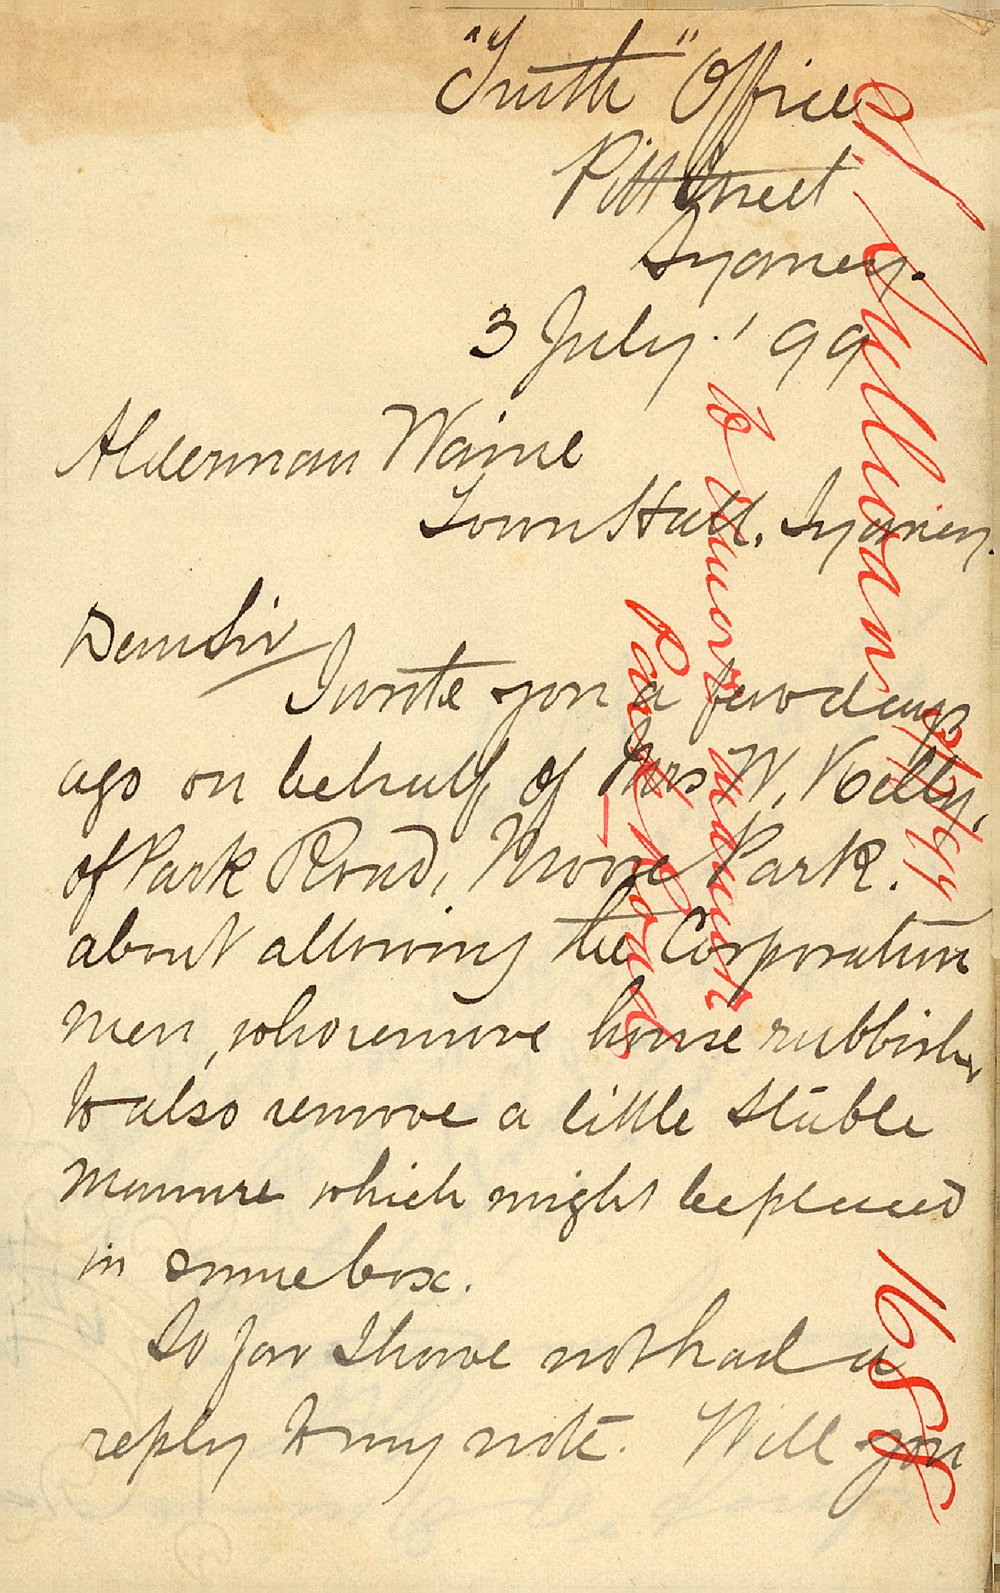 "Truth" Office
Pitt Street
Sydney.
3 July. '99
Alderman Waine
Town Hall, Sydney.
Dear Sir
I wrote you a few days
ago on behalf of Mrs W. Kelly,
of Park Road, Moore Park.
about allowing the Corporation
men, who remove house rubbish,
to also remove a little stable
manure which might be placed
in some box.
So far I have not had a
reply to my note. Will you
O'Sullivan 3/7/99
Park Road
1688